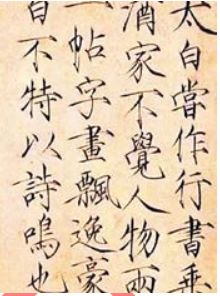 太白當作行書乘
酒家不覺人物兩
一帖字畫飄逸豪
白不特以詩鳴也